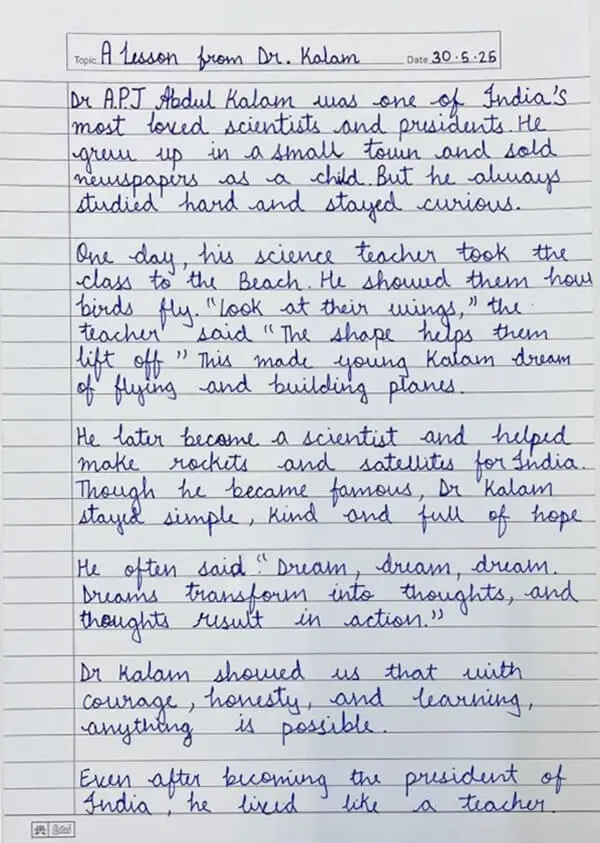 Topic A Lesson from Dr. Kalam Date 30.5.25
Dr A.P.J Abdul Kalam was one of India's
most loved scientists and presidents. He
grew up in a small town and sold
newspapers as a child. But he always
studied hard and stayed curious.
One day, his science teacher took the
class to the Beach. He showed them how
birds fly. "Look at their wings," the
teacher said "The shape helps them
lift off" This made young Kalam dream
of flying and building planes.
He later become a scientist and helped
make rockets and satellites for India.
Though he became famous, Dr Kalam
stayed simple, kind and full of hope
He often said "Dream, dream, dream.
Dreams transform into thoughts, and
thoughts result in action."
Dr Kalam showed us that with
courage, honesty, and learning,
anything is possible.
Even after becoming the president of
India, he lived like a teacher.